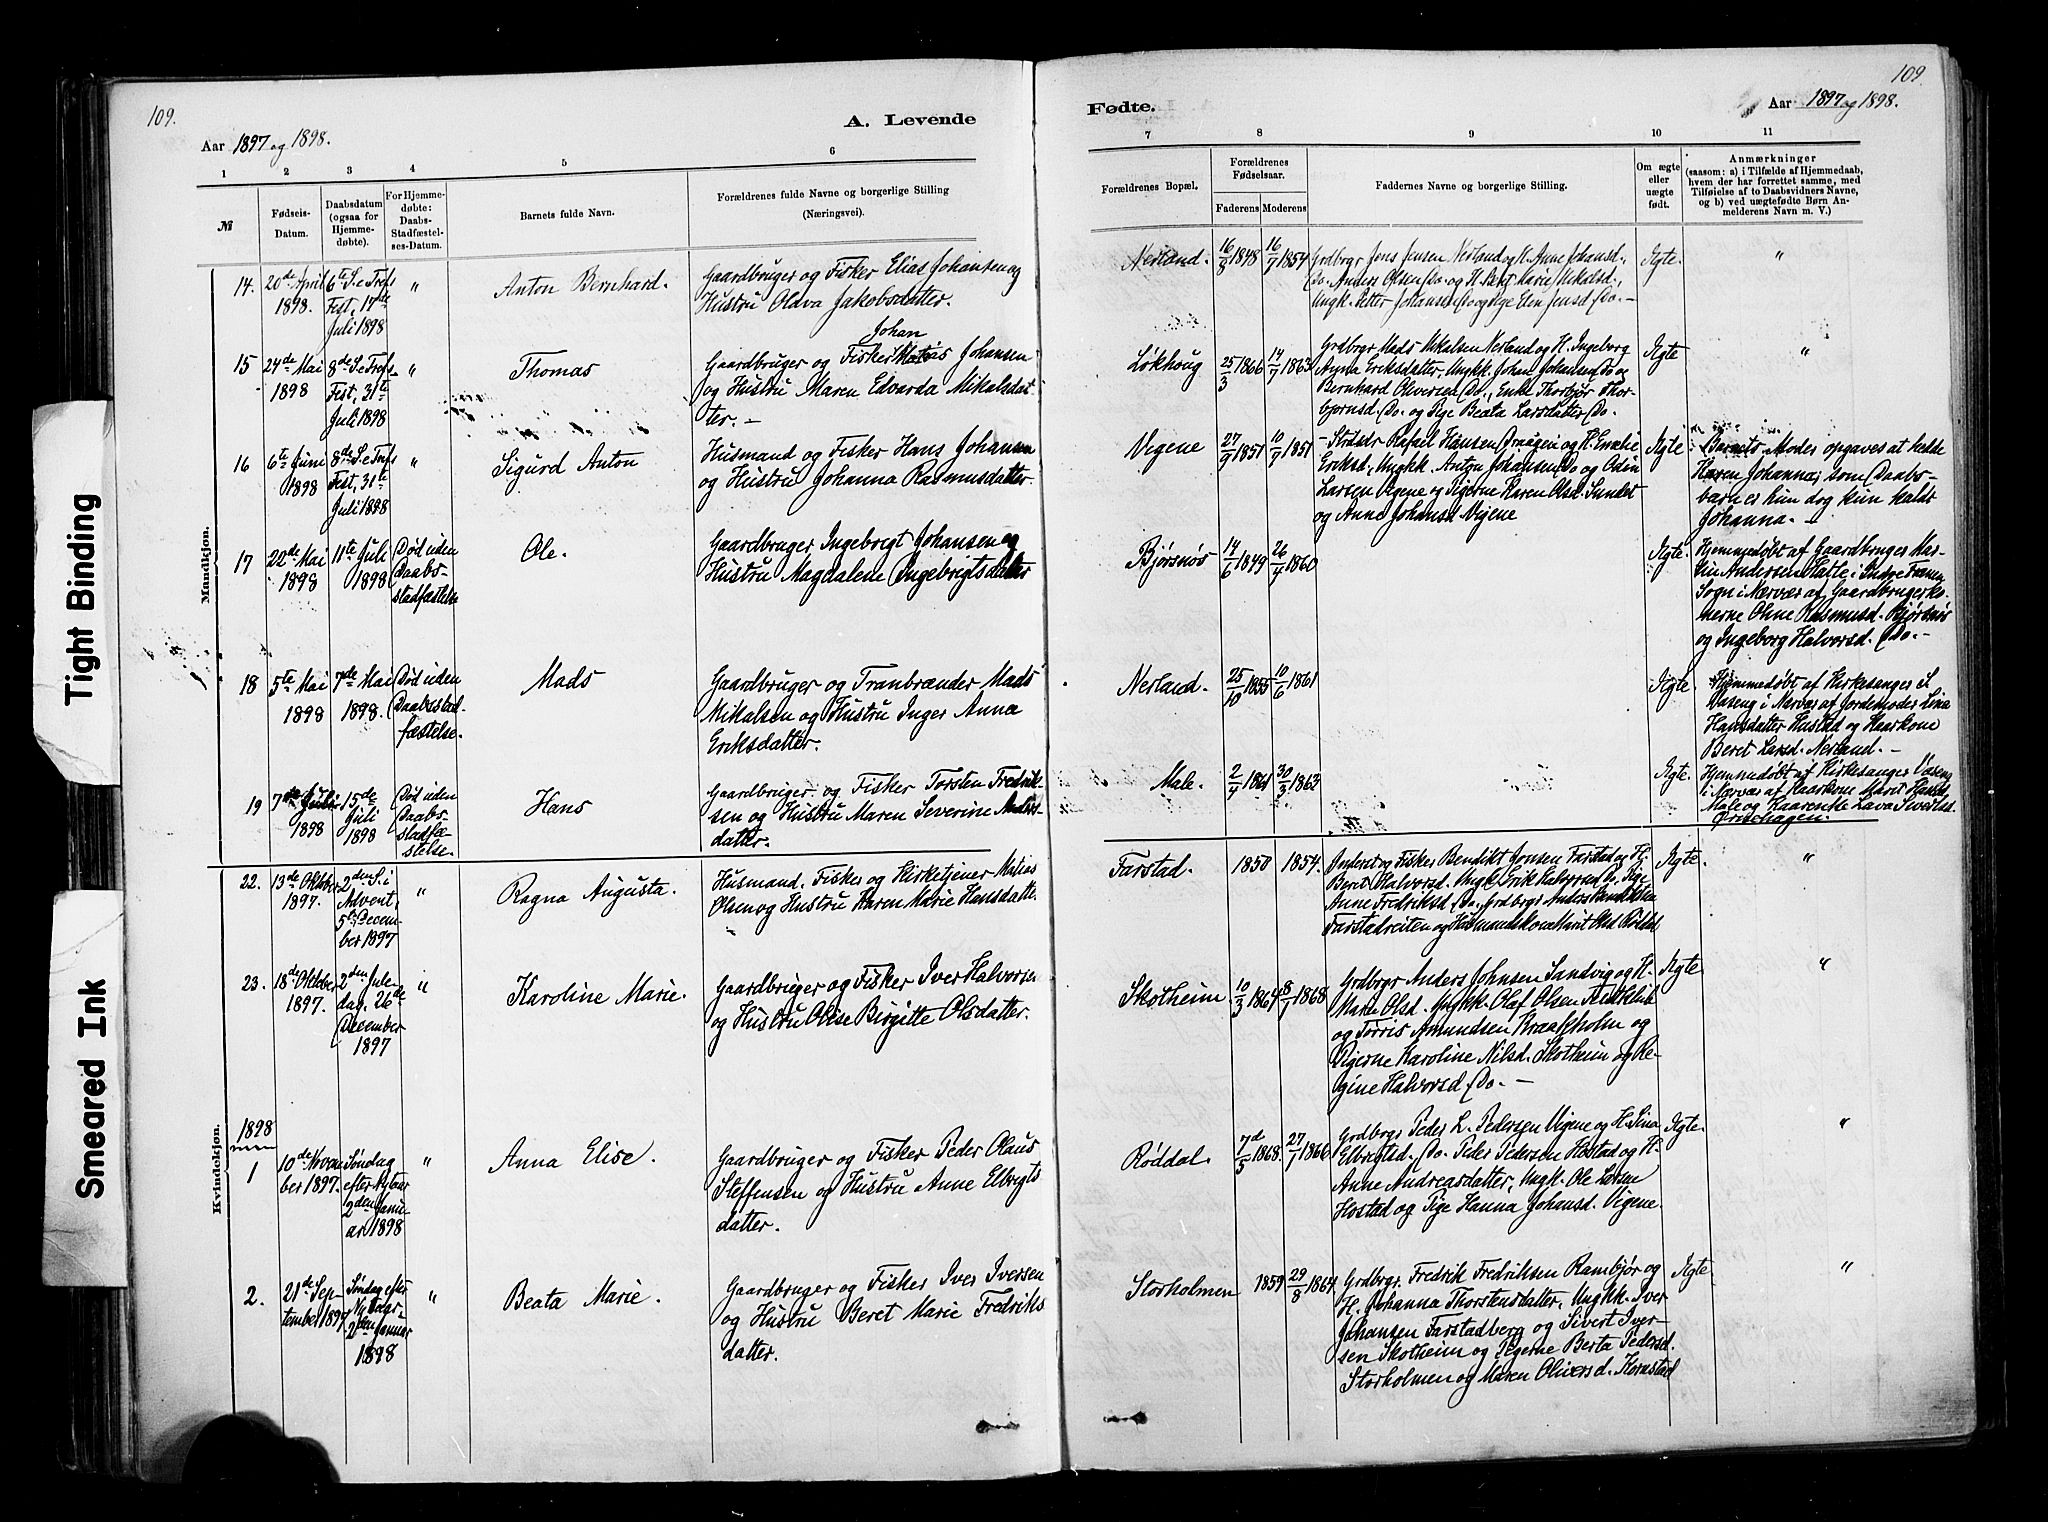 109.
A. Levende
Aar 1897 og 1898.
1 2 3 4 5 6
№
Fødsels-
Datum.
Daabsdatum
(ogsaa for
Hjemme-
døbte).
For Hjemme-
døbte:
Daabs-
Stadfæstel-
ses-Datum.
Barnets fulde Navn.
Forældrenes fulde Navne og borgerlige Stilling
(Næringsvei).
Mandkjøn.
14. 20de April
1898.
6te S. e Tref
Fest, 17de
Juli 1898
"
Anton Bernhard.
Gaardbruger og Fisker Elias Johansen og
Hustru Olava Jakobsdatter.
15 24de Mai
1898
8de S. e Tref
Fest, 31te
Juli 1898
"
Thomas
Johan
Gaardbruger og Fisker Johansen
og Hustru Maren Edvarda Mikalsdat-
ter. -
16 6te Juni
1898
8de S. e Tref
Fest, 31te
Juli 1898
"
Sigurd Anton
Husmand og Fisker Hans Johansen
og Hustru Johanna Rasmusdatter.
17 22de Mai
1898
11te Juli
1898
Død uden
Daabs-
stadfæstelse
Ole.
Gaardbruger Ingebrigt Johansen og
Hustru Magdalene Ingebrigtsdatter
18 5te Mai
1898
7de Mai
1898.
Død uden
Daabsstad-
fæstelse.
Mads
Gaardbruger og Tranbrænder Mads
Mikalsen og Hustru Inger Anna
Eriksdatter.
19 7de Juli
1898
15de
Juli
1898
Død uden
Daabs-
stadfæ-
stelse.
Hans
Gaardbruger og Fisker Torsten Fredrik-
sen og Hustru Maren Severine Anders-
datter.
Kvindekjøn.
22. 13de Oktober
1897.
2den S. i
Advent,
5te Decem-
ber 1897
"
Ragna Augusta.
Husmand, Fisker og Kirketjener Matias
Olsen og Hustru Karen Marie Hansdatter.
23. 18de Oktober
1897.
2den Jule-
dag, 26de
December
1897
"
Karoline Marie.
Gaardbruger og Fisker Iver Halvorsen
og Hustru Olise Birgitte Olsdatter.
1898
1 10de Novem-
ber 1897.
Søndag
efter Nytaar
2den Janu-
ar 1898
"
Anna Elise.
Gaardbruger og Fisker Peder Olaus
Steffensen og Hustru Anne Elbrigts
datter.
2. 21de Sep-
tember 1897
Søndag efter
Nytaar
2den Januar
1898
"
Beata Marie.
Gaardbruger og Fisker Iver Iversen
og Hustru Beret Marie Fredriks
datter.
109
Fødte.
Aar 1897 og 1898.
7 8 9 10 11
Forældrenes Bopæl.
Forældrenes
Fødselsaar.
Faderens Moderens
Faddernes Navne og borgerlige Stilling.
Om ægte
eller
uægte
født.
Anmærkninger
(saasom: a) i Tilfælde af Hjemmedaab,
hvem der har forrettet samme, med
Tilføielse af to Daabsvidners Navne,
og b) ved uægtefødte Børn An-
melderens Navn m. V.)
Nerland. 16/8 1848 16/7 1854
Grdbrgr Jens Jensen Nerland og H. Anne Johansd.,
Do. Anders Olsen Do. og H. Beret Marie Mikalsd.,
Ungk. Petter Johansen Do og Pige Elen Jensd Do. -
Ægte. "
Løkhoug 25/3 1866 14/7 1863
Grdbrgr Mads Mikalsen Nerland og H. Ingeborg
Anna Eriksdatter, Ungkk. Johan Johansen Do og
Bernhard Oliversen Do., Enke Thorbjør Thor-
bjørnsd. Do. og Pige Beata Larsdatter Do.
Ægte "
Vegene 27/9 1851 10/7 1851
Rafael Hansen Draagen og H. Emelie
Eriksd., Ungkk. Anton Johansen Do og Odin
Larsen Vigene og Pigerne Karen Olsd. Sundet
og Anne Johansd Vigene
Ægte
Barnets Moder opgaves at hedde
Karen Johanna; som Daabs-
barn er hun dog kun kaldt
Johanna. -
Bjørsnøs 14/6 1849 26/4 1860
Ægte.
Hjemmedøbt af Gaardbruger Mar-
tin Andersen Hatle i Indre Frænen
Sogn i Nærvær af Gaardbrugerko-
nerne Oline Rasmusd. Bjørsnøs
og Ingeborg Halvorsd. Do. -
Nerland. 25/10 1855 10/6 1861
Ægte
Hjemmedøbt af Kirkesanger S.
Vaseng i Nærvær af Jordemoder Lina
Hansdatter Hustad og Kaarkone
Beret Larsd. Nerland. -
Male. 2/4 1861 30/3 1863
Ægte.
Hjemmedøbt af Kirkesanger Vaseng
i Nærvær af Kaarkone Marit Hansd.
Male og Kaarenke Lava Sivertsd.
Farstad. 1850 1854.
Inderst og Fisker Bendikt Jonsen Farstad og H.
Beret Halvorsd. Ungk. Erik Halvorsen Do. Pige
Anne Fredriksd Do., Grdbrgr Anders Bendiktsen
Farstadreiten og Husmandskone Marit Olsd Rødsal
Ægte. "
Skotheim 10/3 1864 8/7 1868
Grdbrgr Anders Johnsen Sandvig og H.
Mare Olsd. Ungkk. Olaf Olsen
og Torris Amundsen Kraakholm og
Pigerne Karoline Nilsd. Skotheim og Re-
gine Halvorsd Do. -
Ægte "
Røddal. 7d/5 1868. 27/7 1866
Grdbrgr Peder L. Pedersen Vigene og H. Lina
Elbrigtsd. Do. Peder Pedersen Hostad og H.
Anne Andreasdatter, Ungk. Ole Larsen
Hostad og Pige Hanna Johansd. Vigene.
Ægte. "
Storholmen 1859 29/8 1864
Grdbrgr. Fredrik Fredriksen Rambjør og
H. Johanna Thorstensdatter, Ungkk. Iver
Johansen Farstadberg og Sivert Iver-
sen Skotheim og Pigerne Berta Pedersd.
Storholmen og Maren Oliversd. Kornstad
Ægte "
Tight Binding
Smeared Ink